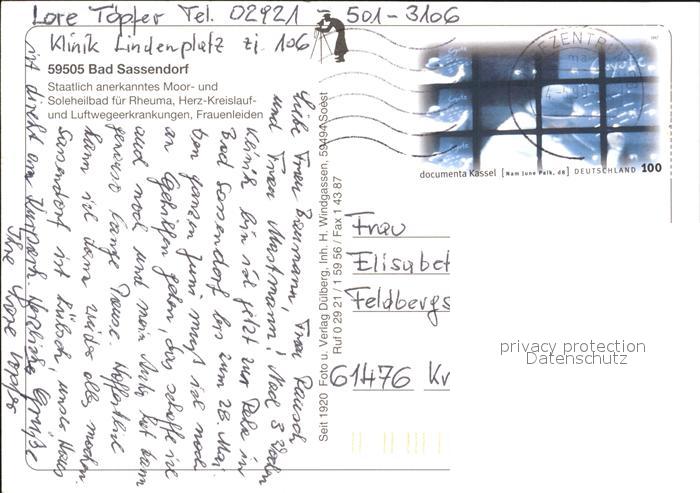 Lore Töpfer Tel. 02921 501-3106
Klinik Lindenplatz Zi. 106
59505 Bad Sassendorf
Staatlich anerkanntes Moor- und
Soleheilbad für Rheuma, Herz-Kreislauf-
und Luftwegeerkrankungen, Frauenleiden
Liebe Frau Baumann, Frau Rausch
und Frau Mustmann! Nach 3 Wochen
Klinik bin ich jetzt zur Reha in
Bad Sassendorf bis zum 28. Mai.
Den ganzen Juni muß ich noch
an Gehhilfen gehen, das schaffe ich
auch noch und mein Auto hat dann
genauso lange Pause. Hoffentlich
kann ich dann wieder alles machen.
Sassendorf ist hübsch, unser Haus
ist direkt am Kurpark. Herzliche Grüße
Ihre Lore Töpfer
Seit 1920 Foto u. Verlag Dülberg, Inh. H. Windgassen, 59494 Soest
Ruf 0 29 21 / 1 59 56 / Fax 1 43 87
documenta Kassel [Nam June Paik, d8] DEUTSCHLAND 100
Frau
Elisabet
Feldbergs
61476 Kr
privacy protection
Datenschutz